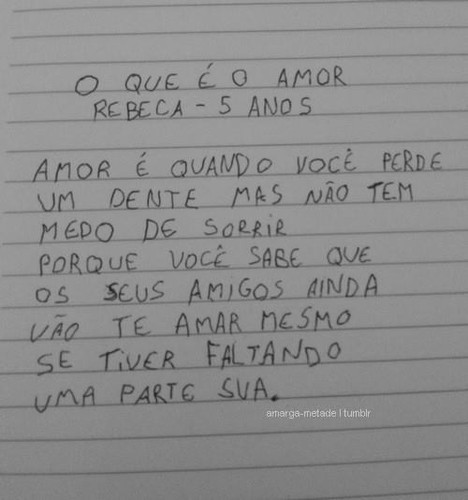 O QUE É O AMOR
REBECA - 5 ANOS
AMOR É QUANDO VOCÊ PERDE
UM DENTE MAS NÃO TEM
MEDO DE SORRIR
PORQUE VOCÊ SABE QUE
OS SEUS AMIGOS AINDA
VÃO TE AMAR MESMO
SE TIVER FALTANDO
UMA PARTE SUA.
amarga-metade | tumblr